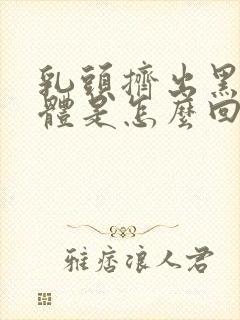 乳頭擠出黑
體是怎麼回
雅痞浪人君